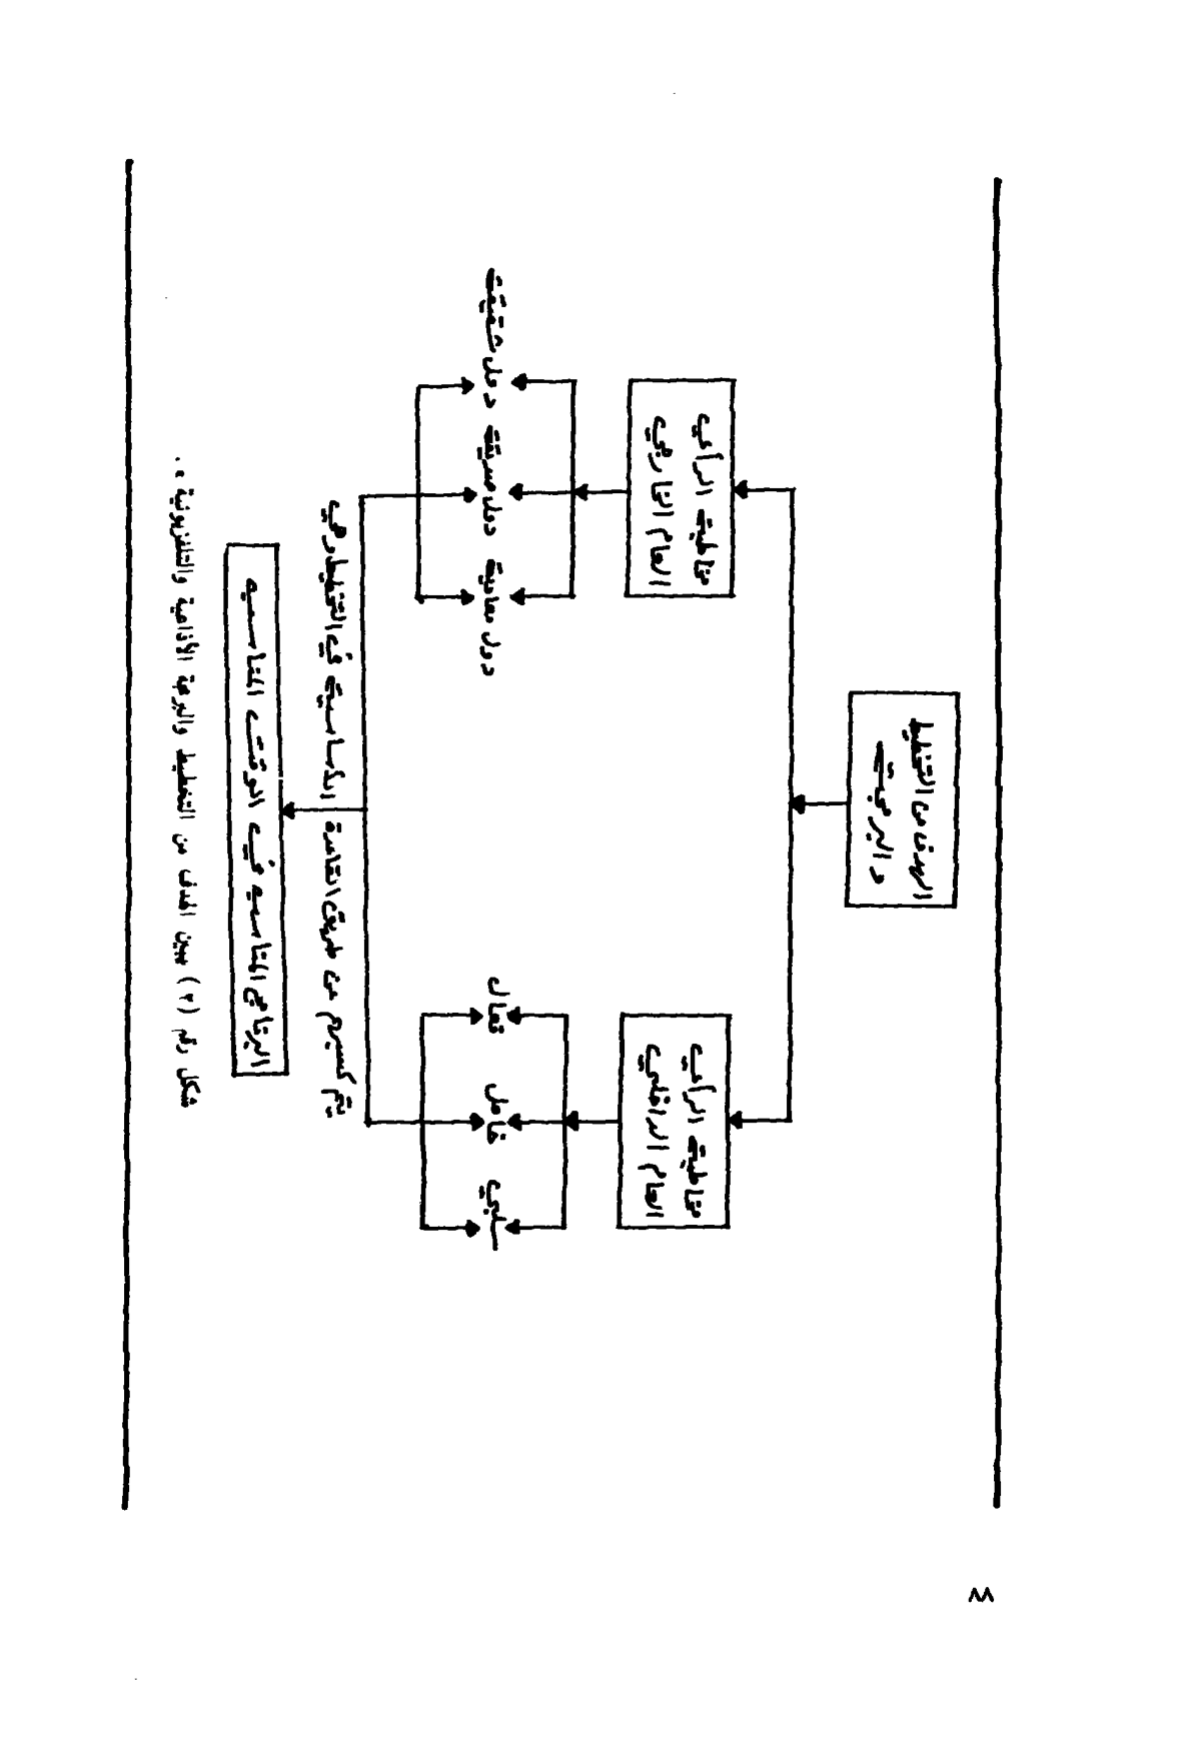 الهدف من التخطيط
والبرمجة
مخاطبة الرأي
العام الداخلي
مخاطبة الرأي
العام الخارجي
سلبي
خامل
فعال
دول معادية
دول صديقة
دول شقيقة
يتم كسبهم عن طريق القاعدة الاساسية في التخطيط وهي
البرنامج المناسب في الوقت المناسب
شكل رقم (٢) يبين الهدف من التخطيط والبرمجة الأذاعية والتلفزيونية .
٨٨